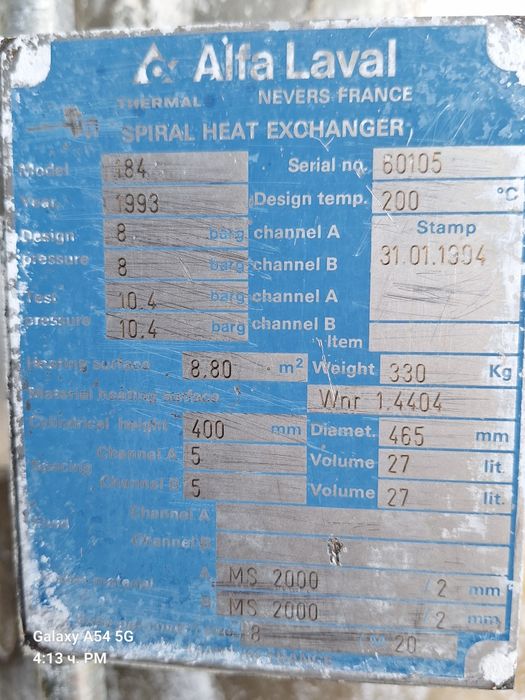 Alfa Laval
THERMAL NEVERS FRANCE
SPIRAL HEAT EXCHANGER
Model 184 Serial no. 60105
Year 1993 Design temp. 200 °C
Design 8 barg channel A Stamp
pressure 8 barg channel B 31.01.1994
Test 10.4 barg channel A
pressure 10.4 barg channel B
Item
Heating surface 8.80 m² Weight 330 Kg
Material heating surface Wnr 1.4404
Cylindrical height 400 mm Diamet. 465 mm
Spacing Channel A 5 Volume 27 lit.
Channel B 5 Volume 27 lit.
Channel A
Channel B
material A MS 2000 / 2 mm
B MS 2000 / 2 mm
8 / M 20
Galaxy A54 5G
4:13 ч. PM